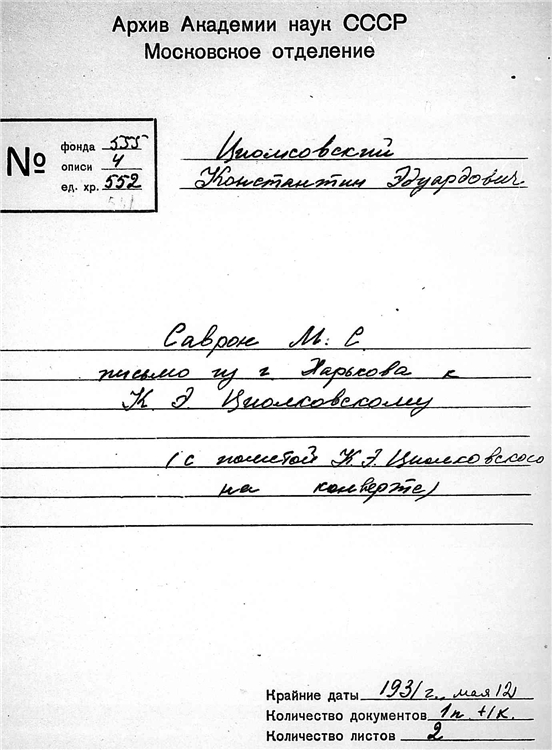 Архив Академии наук СССР
Московское отделение
№
фонда 555
описи 4
ед. хр. 552
Циолковский
Константин Эдуардович
Саврон М. С.
письмо из г. Харькова к
К. Э. Циолковскому
(с пометой К.Э. Циолковского
на конверте)
Крайние даты 1931 г., мая 12
Количество документов 1п. +1к.
Количество листов 2